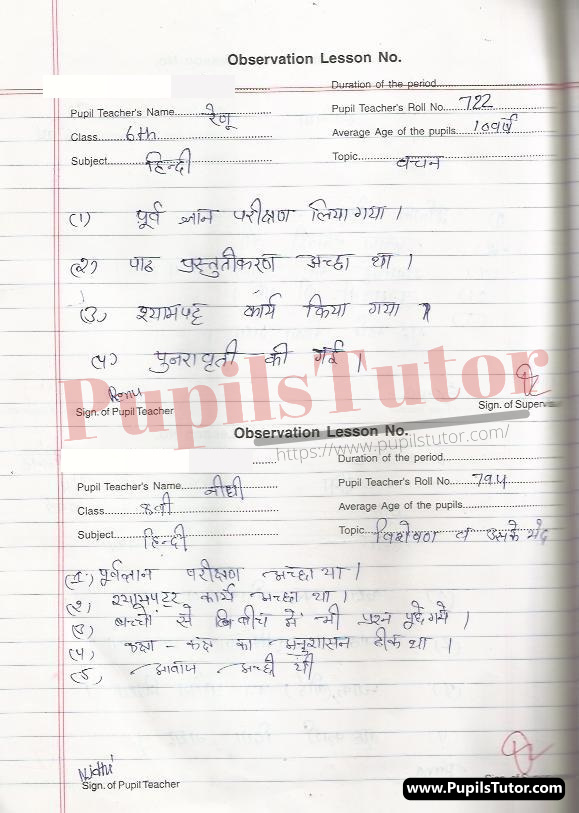 Observation Lesson No.
Duration of the period
Pupil Teacher's Name रेणू
Pupil Teacher's Roll No. 722
Class 6th
Average Age of the pupils 10 वर्ष
Subject हिन्दी
Topic वचन
(1) पूर्व ज्ञान परीक्षण लिया गया ।
(२) पाठ प्रस्तुतीकरण अच्छा था ।
(३) श्यामपट्ट कार्य किया गया ।
(४) पुनरावृती की गई ।
Renu
Sign. of Pupil Teacher
Sign. of Superv
PupilsTutor
Observation Lesson No.
https://www.pupilstutor.com/
Duration of the period
Pupil Teacher's Name नीधी
Pupil Teacher's Roll No. 794
Class 8वी
Average Age of the pupils
Subject हिन्दी
Topic विशेषण व उसके भेद
(1) पूर्वज्ञान परीक्षण अच्छा था ।
(२) श्यामपटर कार्य अच्छा था ।
(३) बच्चों से बीच में भी प्रश्न पूछे गये ।
(४) कक्षा - कक्ष का अनुशासन ठीक था ।
(५) आवाज अच्छी थी
Nidhi
Sign. of Pupil Teacher
www.PupilsTutor.com